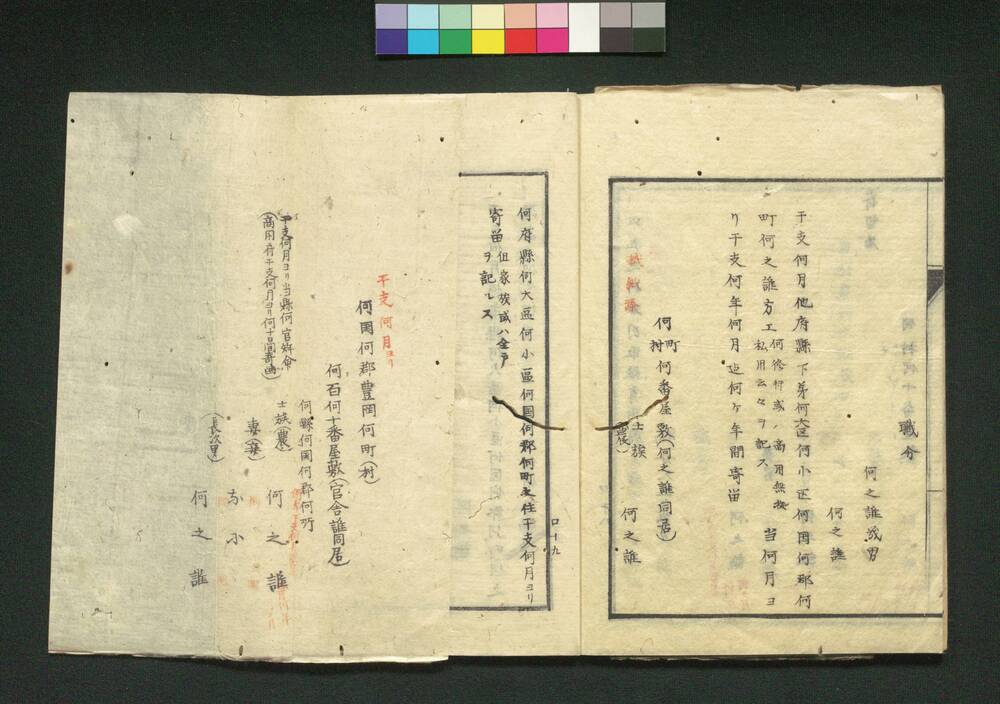 職分
何之誰㡬男
何之誰
干支何月他府縣下第何大区何小区何国何郡何
町何之誰方エ何修行或ハ商用無拠 当何月ヨ
私用云々ヲ記ス
リ干支何年何月迠何ケ年間寄留
何町
村何番屋敷(何之誰同居)
士族
(農)
何之誰
ロ一九
何府縣何大區何小區何国何郡何町之住干支何月ヨリ
寄留但家族或ハ全戸
ヲ記ルス
干支何月ヨリ
何国何郡豊岡何町(村)
何百何十番屋敷(官舎誰同居)
何縣何國何郡何所
士族(農)
何之誰
妻(妾)
お小
(長次男)
何之誰
干支何月ヨリ当縣何官拜命
(商用ニ付干支何月ヨリ何十日間寄留)